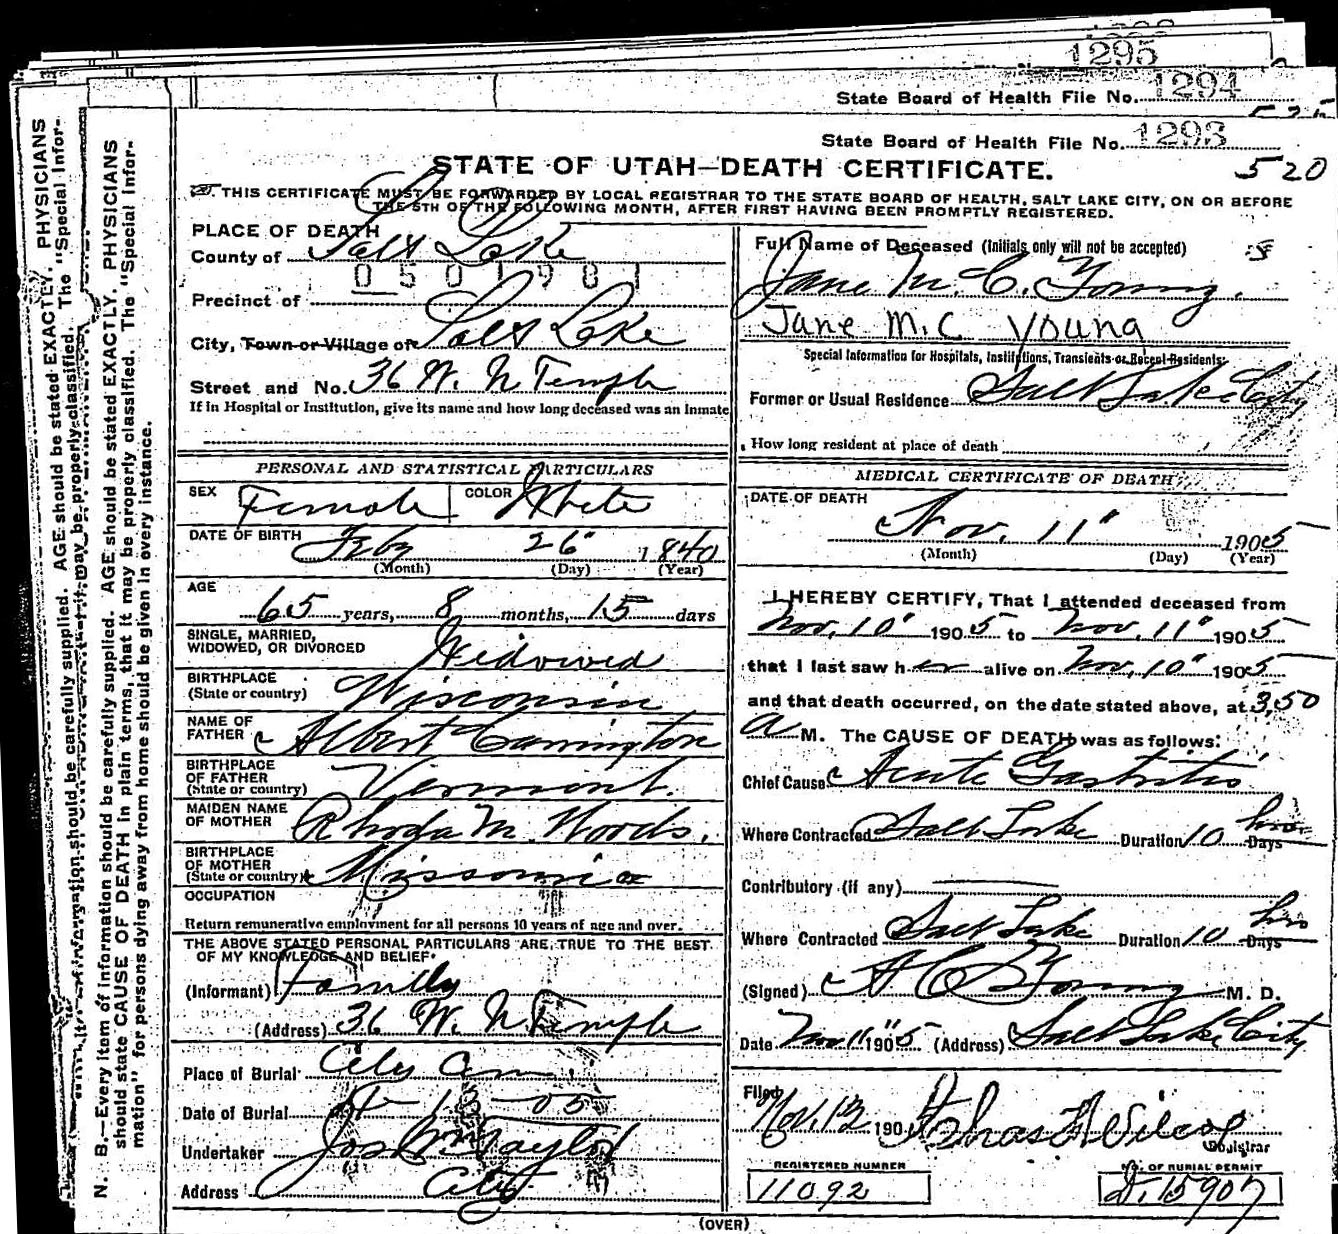 1295
1294
State Board of Health File No.
State Board of Health File No. 1293
520
STATE OF UTAH—DEATH CERTIFICATE.
THIS CERTIFICATE MUST BE FORWARDED BY LOCAL REGISTRAR TO THE STATE BOARD OF HEALTH, SALT LAKE CITY, ON OR BEFORE
THE 5TH OF THE FOLLOWING MONTH, AFTER FIRST HAVING BEEN PROMPTLY REGISTERED.
PLACE OF DEATH
County of Salt Lake
0501981
Precinct of
City, Town or Village of Salt Lake
Street and No. 36 W. N Temple
If in Hospital or Institution, give its name and how long deceased was an Inmate
Full Name of Deceased (Initials only will not be accepted)
Jane M. C. Young.
Jane M.C Young
Special Information for Hospitals, Institutions, Transients or Recent Residents:
Former or Usual Residence Salt Lake City
How long resident at place of death
PERSONAL AND STATISTICAL PARTICULARS
SEX Female COLOR White
DATE OF BIRTH Feby 26" 1840
(Month) (Day) (Year)
AGE
65 years, 8 months, 15 days
SINGLE, MARRIED,
WIDOWED, OR DIVORCED Widowed
BIRTHPLACE
(State or country) Wisconsin
NAME OF
FATHER Albert Carrington
BIRTHPLACE
OF FATHER
(State or country) Vermont.
MAIDEN NAME
OF MOTHER Rhoda M. Woods.
BIRTHPLACE
OF MOTHER
(State or country) Missouri
OCCUPATION
Return remunerative employment for all persons 10 years of age and over.
THE ABOVE STATED PERSONAL PARTICULARS ARE TRUE TO THE BEST
OF MY KNOWLEDGE AND BELIEF.
(Informant) Family
(Address) 36 W. N Temple
Place of Burial City Cem.
Date of Burial 11-13-05
Undertaker Jos. Wm Taylor
Address City
MEDICAL CERTIFICATE OF DEATH
DATE OF DEATH
Nov. 11" 1905
(Month) (Day) (Year)
I HEREBY CERTIFY, That I attended deceased from
Nov. 10" 1905 to Nov. 11" 1905
that I last saw her alive on Nov. 10" 1905
and that death occurred, on the date stated above, at 3,50
a M. The CAUSE OF DEATH was as follows:
Chief Cause Acute Gastritis
Where Contracted Salt Lake Duration 10 hrs Days
Contributory (if any)
Where Contracted Salt Lake Duration 10 hrs Days
(Signed) A C Young M. D.
Date Nov 11" 1905 (Address) Salt Lake City
Filed Nov. 13 190 Wilcox
Registrar
REGISTERED NUMBER
11092
NO. OF BURIAL PERMIT
D.15907
(OVER)
N. B.—Every item of information should be carefully supplied. AGE should be stated EXACTLY. PHYSICIANS
should state CAUSE OF DEATH in plain terms, that it may be properly classified. The "Special Infor-
mation" for persons dying away from home should be given in every instance.